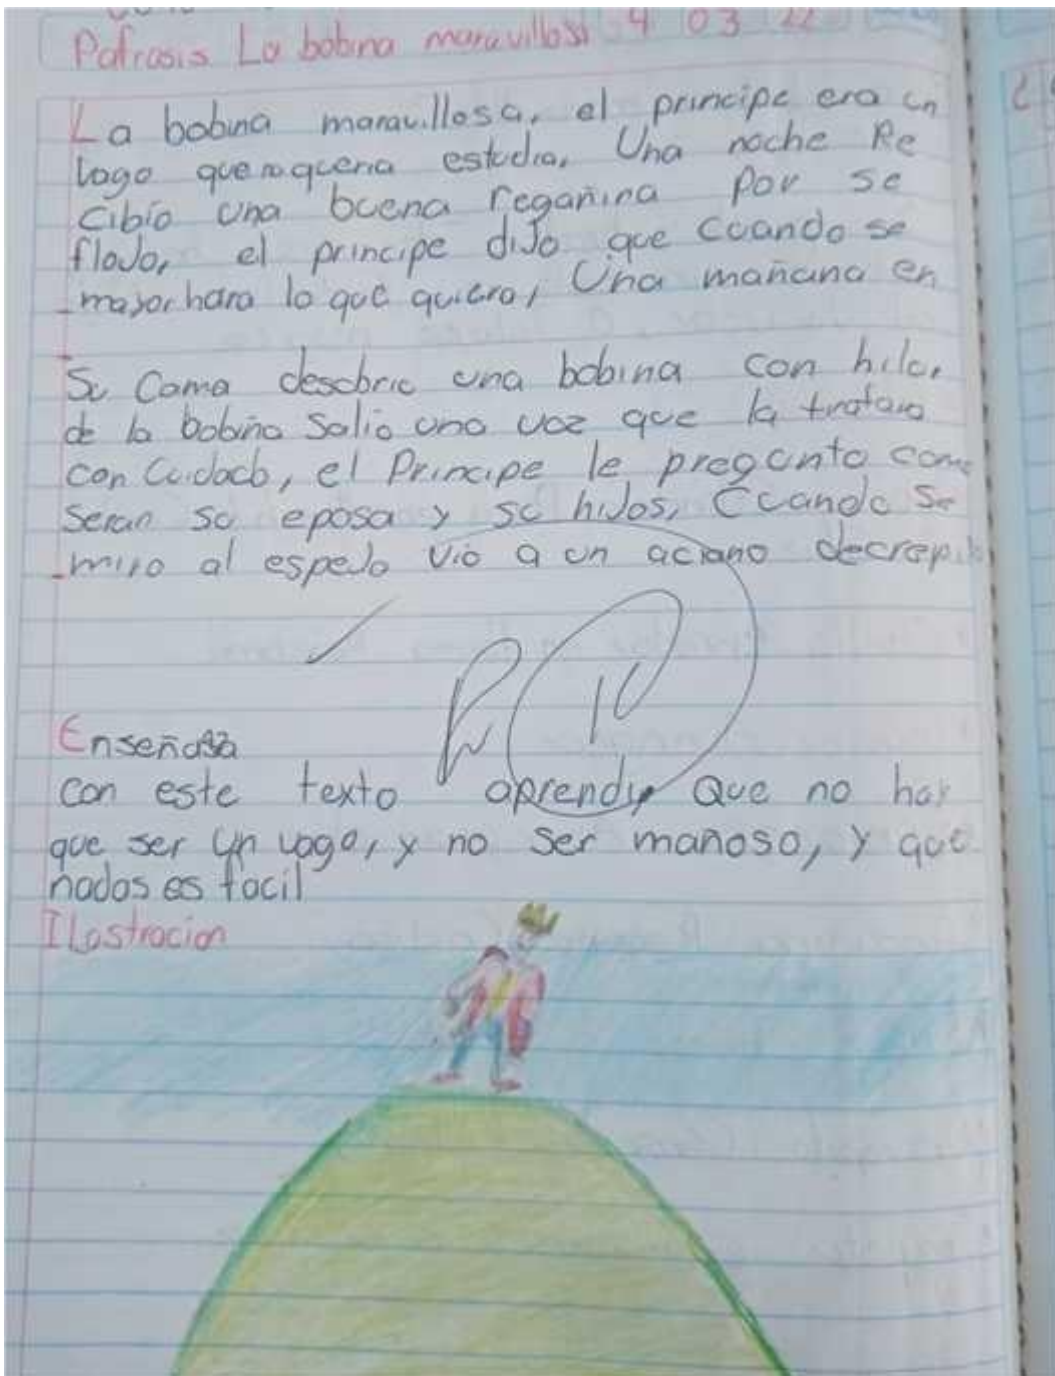 Pafrasis La bobina maravillosa 4 03 22
La bobina maravillosa, el principe era un
vago que no queria estudia, Una noche Re
cibio una buena regañina por se
flojo, el principe dijo que cuando se
mayor hara lo que quiera, Una mañana en
Su Cama descbrie una bobina con hilo,
de la bobina Salio una voz que la tratara
con Cuidado, el Principe le pregunto como
seran su eposa y su hijos, Cuando Se
miro al espejo vio a un aciano decrepito
10
Enseñasa
con este texto aprendi, Que no hay
que ser un vago, y no ser mañoso, y que
nados es facil
Ilostracion